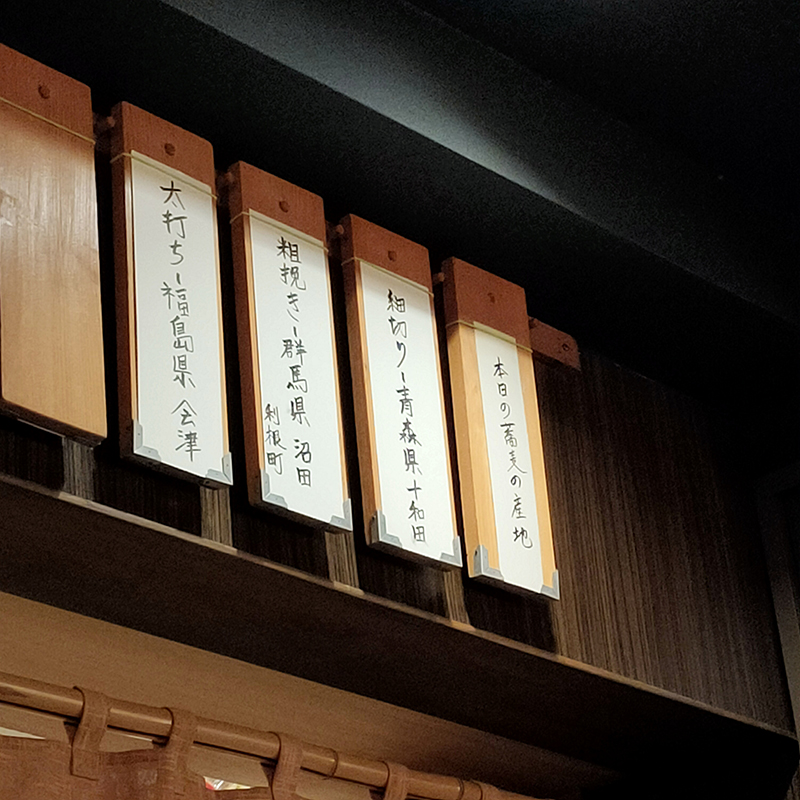 本日の蕎麦の産地
細切り-青森県十和田
粗挽き-群馬県 沼田
利根町
太打ち-福島県 会津